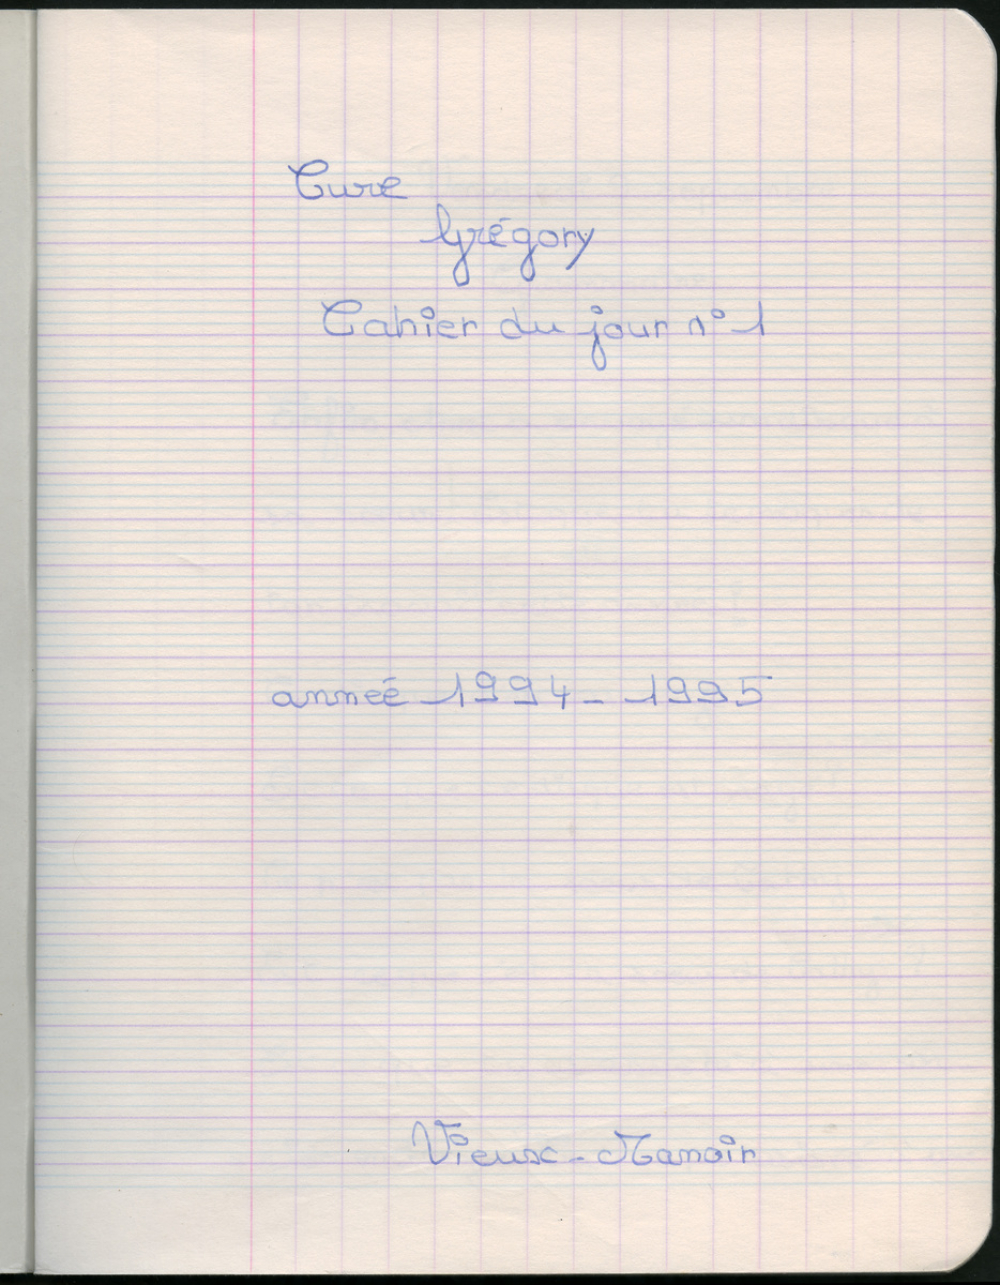 Cure
Grégory
Cahier du jour n° 1
année 1994 - 1995
Vieux - Manoir